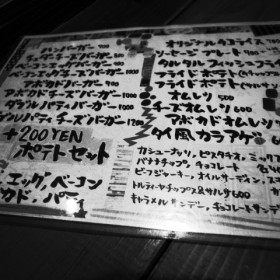 ハンバーガー
チーズバーガー
ベーコンエッグチーズバーガー
アボカドバーガー 900
アボカドチーズバーガー 1000
ダブルパティバーガー 1100
ダブルパティチーズバーガー 1200
+200YEN
ポテトセット
エッグ、ベーコン
カド、パティ
オリジナルタコライス
ソーセージプレート
タルタルフィッシュフ
フライドポテト
フライドポテト
オムレツ 500
チーズオムレツ 600
アボカドオムレツ
タイ風カラアゲ
カシューナッツ、ピスタチオ、ミックス
バナナチップ、チョコレート
ビーフジャッキー、オイルサーディン
トルティーヤチップス&サルサ 600
キャラメルキャンデー、チョコレート